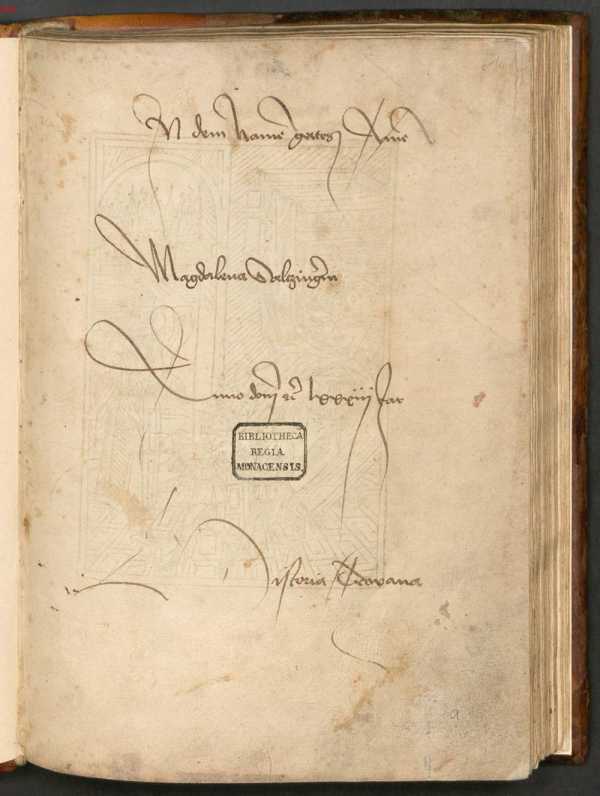 In dem Name gottes Ame
Magdalena
Anno domj lxxxiij Jar
BIBLIOTHECA
REGIA
MONACENSIS.
Historia Troyana
a